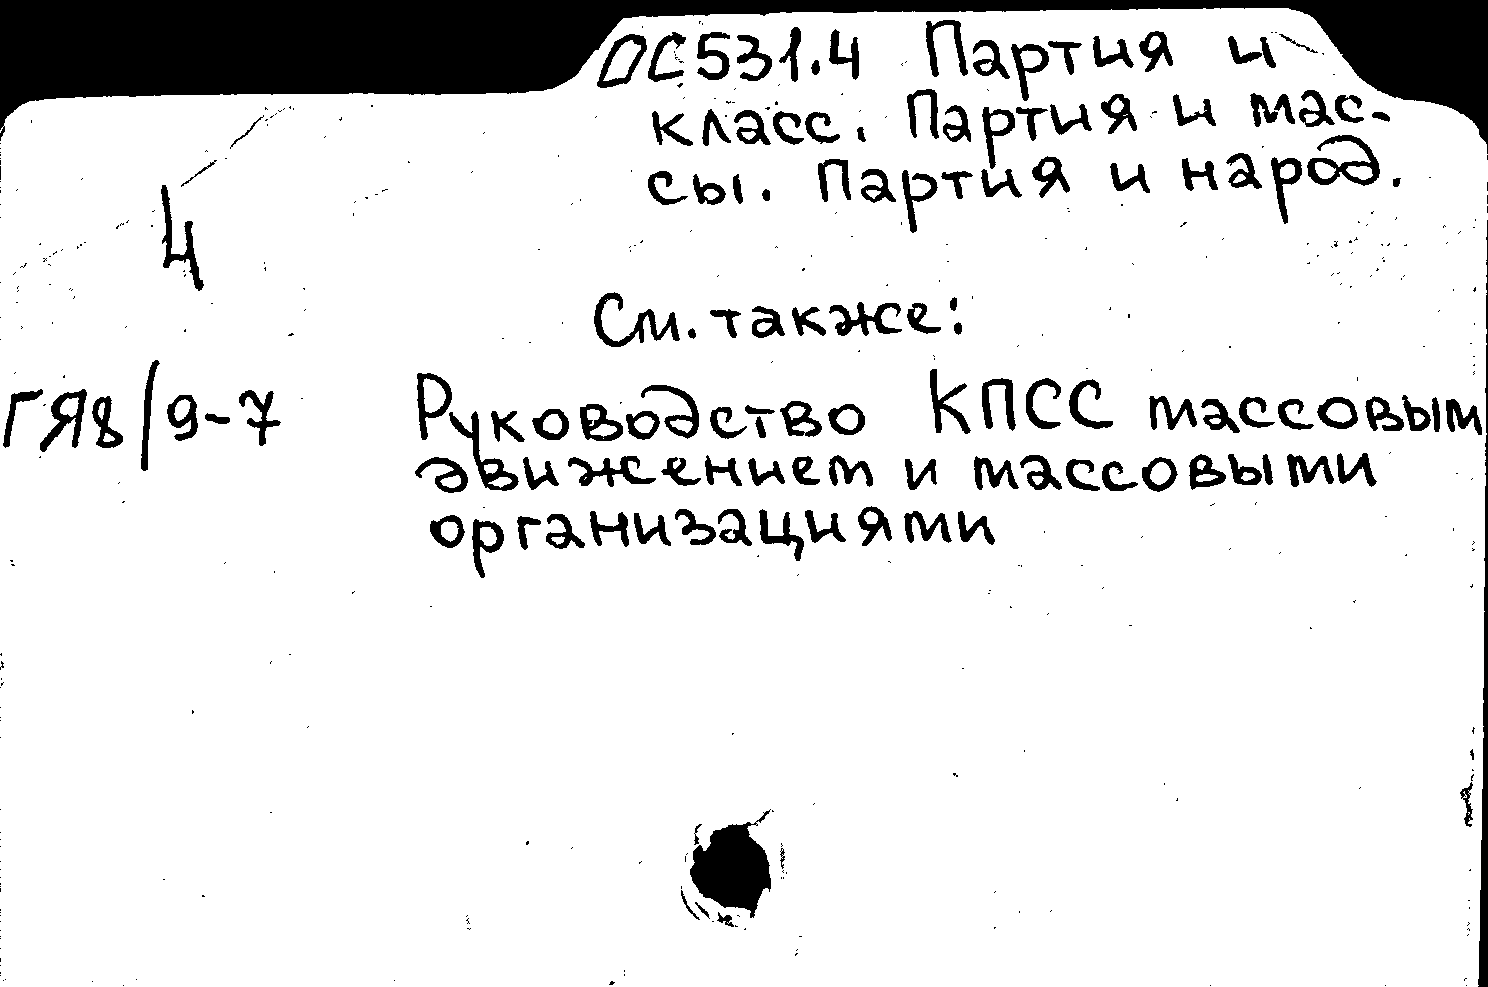 ОС531.4 Партия и
класс. Партия и мас-
сы. Партия и народ.
4
См. также:
ГЯ8/9-7 Руководство КПСС массовым
движением и массовыми
организациями